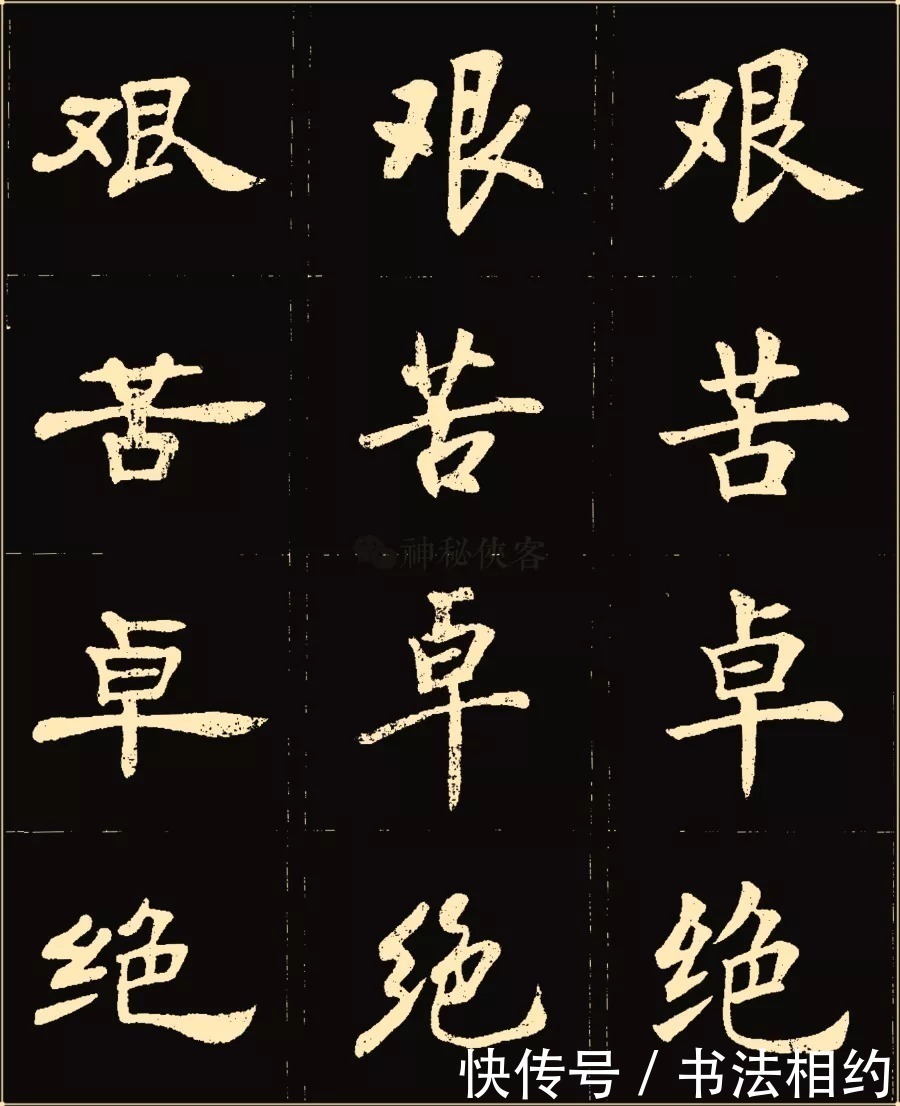 艰 艰 艰
苦 苦 苦
神秘侠客
卓 卓 卓
绝 绝 绝
快传号 / 书法相约